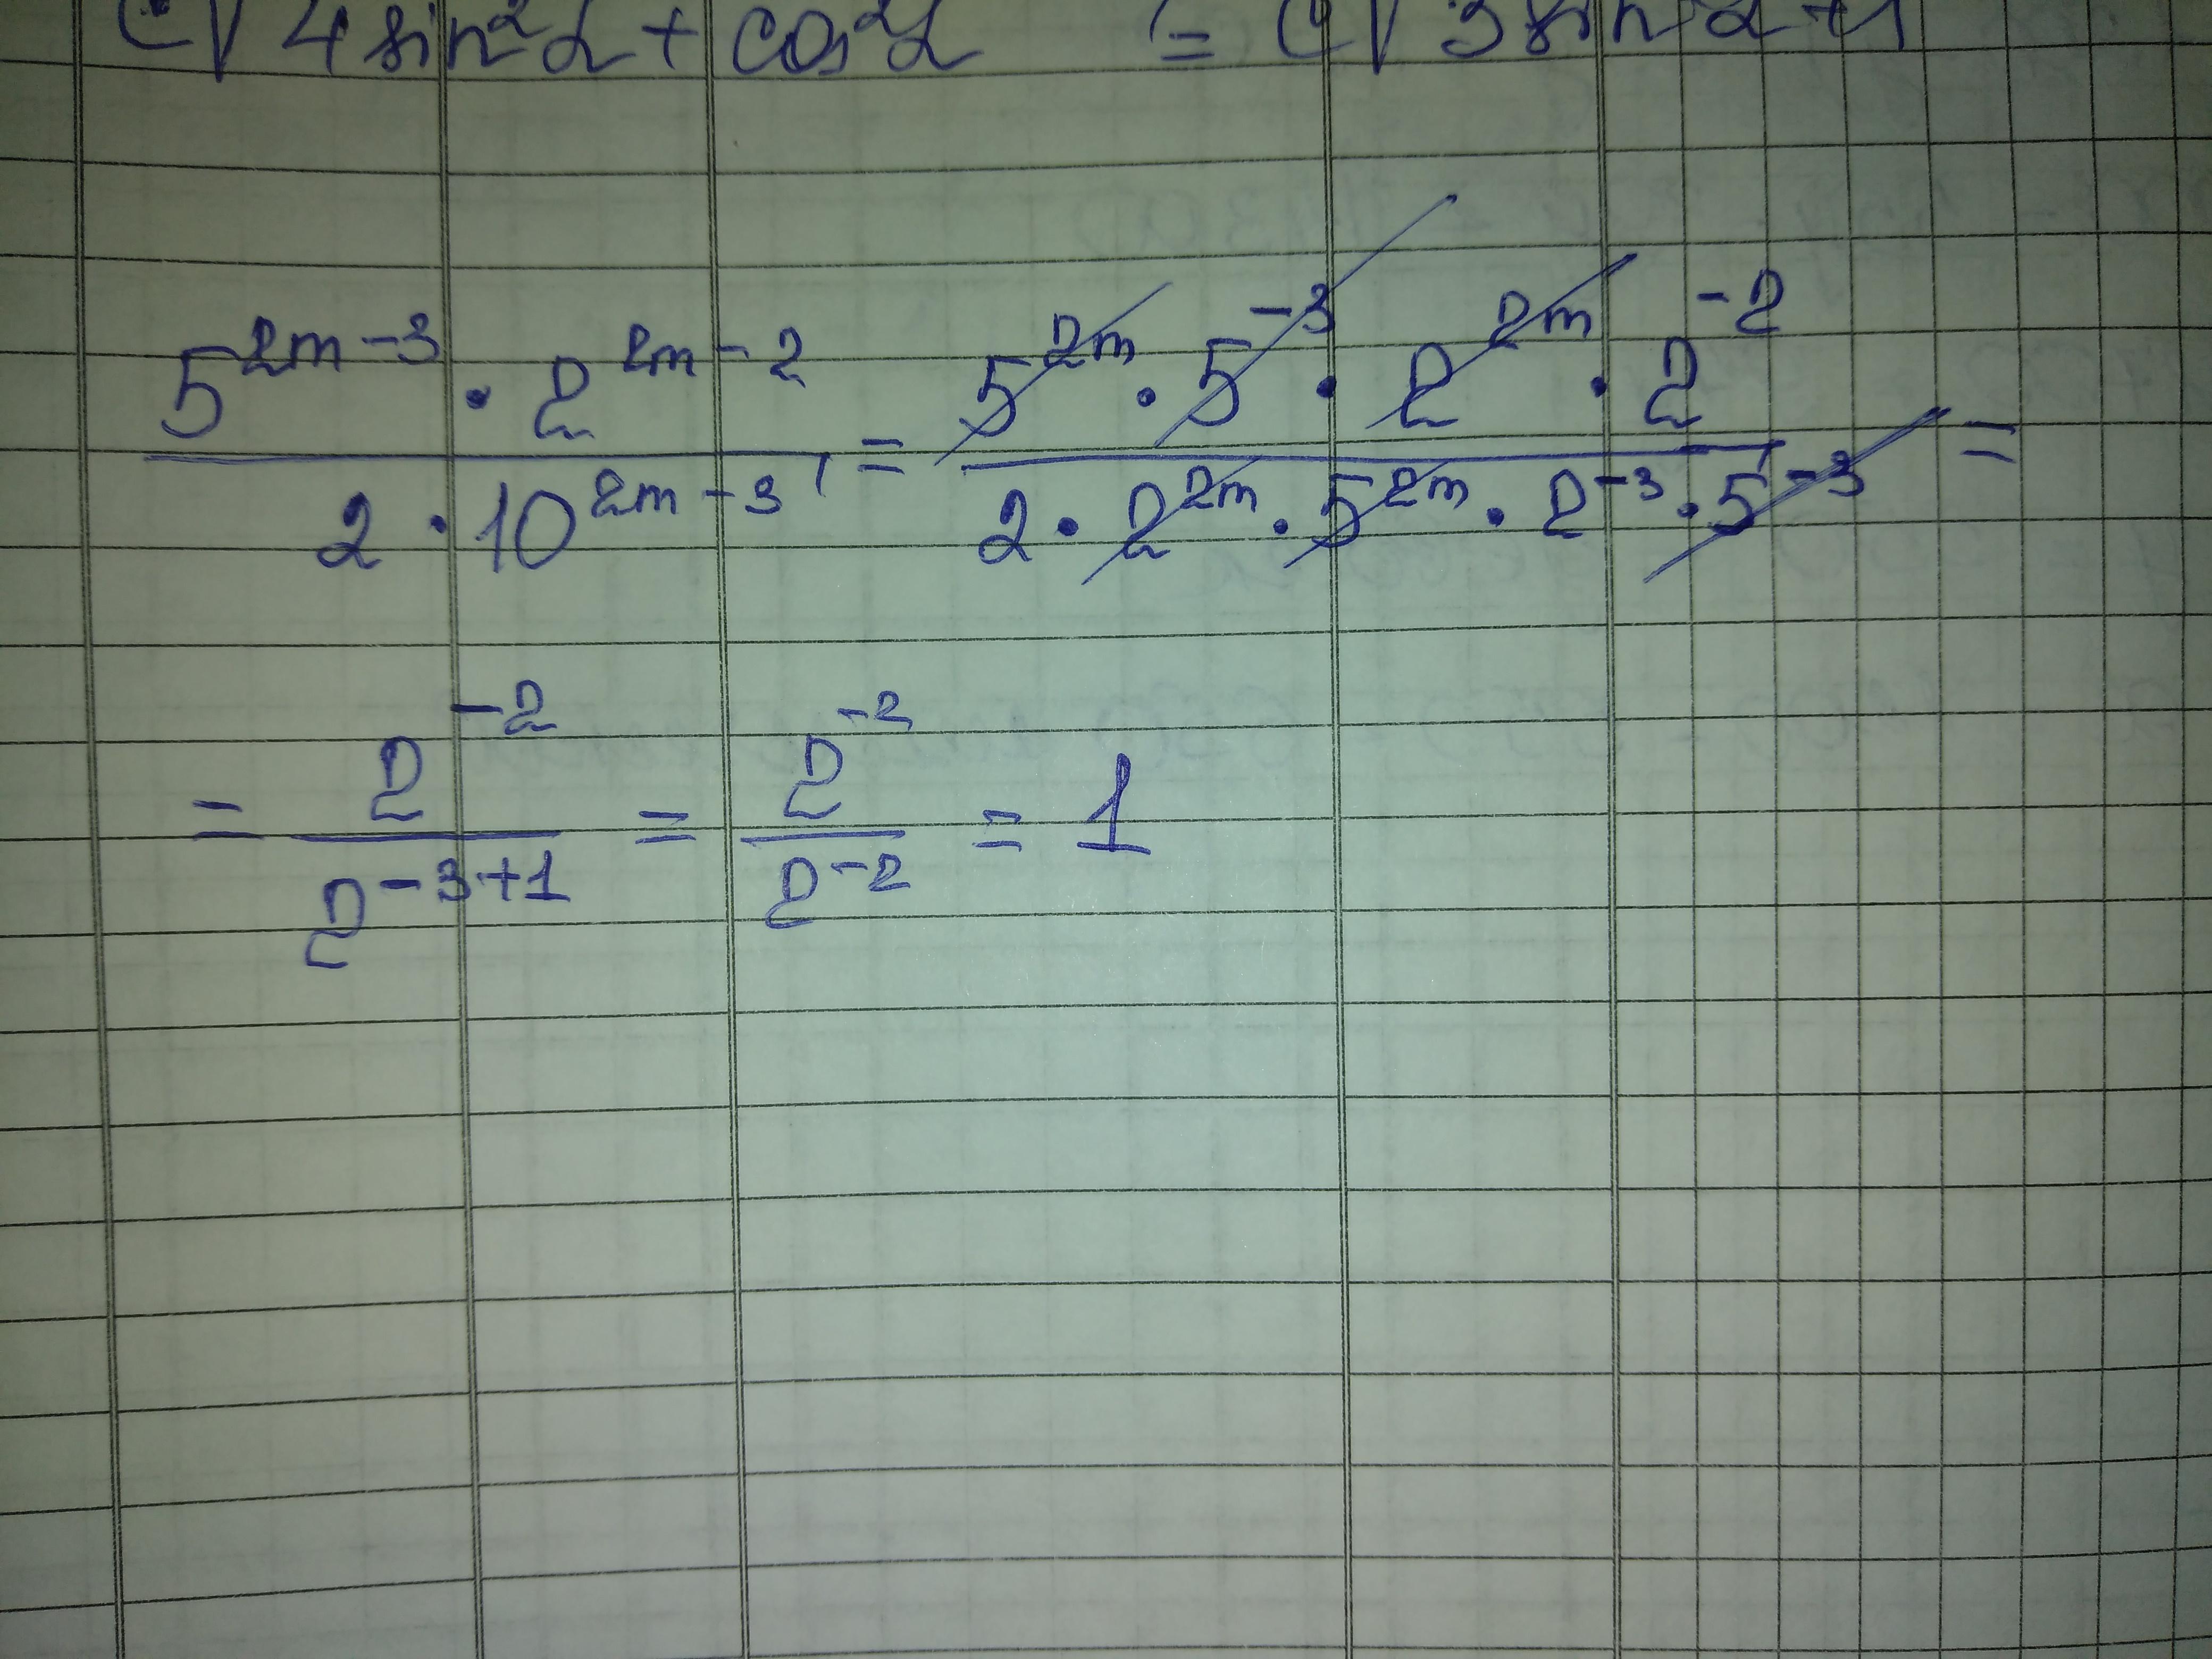 √4sin²α + cos²α = √3sin²α+1
5^(2m-3) · 2^(2m-2) / 2 · 10^(2m-3) = 5^(2m) · 5^(-3) · 2^(2m) · 2^(-2) / 2 · 2^(2m) · 5^(2m) · 2^(-3) · 5^(-3) =
= 2^(-2) / 2^(-3+1) = 2^(-2) / 2^(-2) = 1